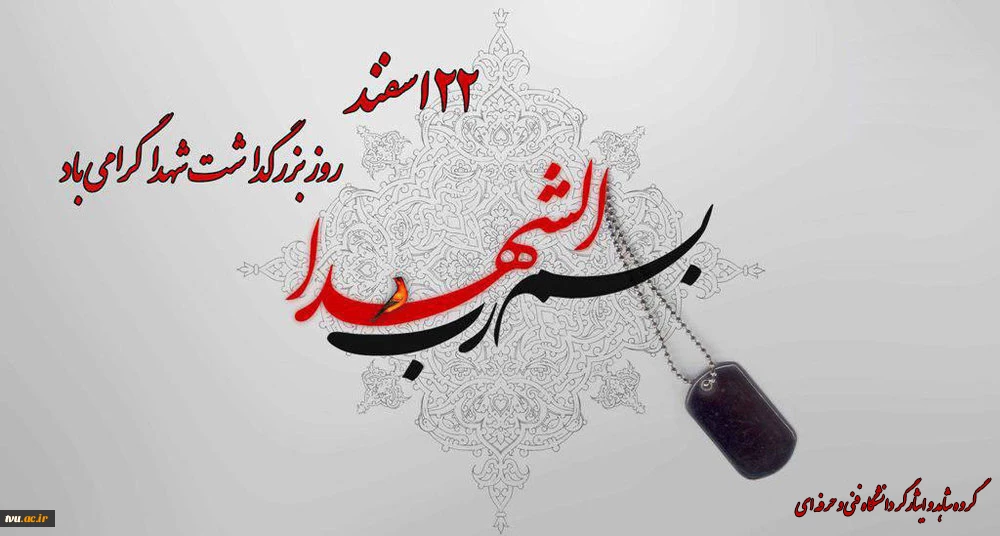 ۲۲ اسفند
روز بزرگداشت شهدا گرامی باد
بسم رب الشهدا
گروه شاهد و ایثارگر دانشگاه فنی و حرفه ای
tvu.ac.ir